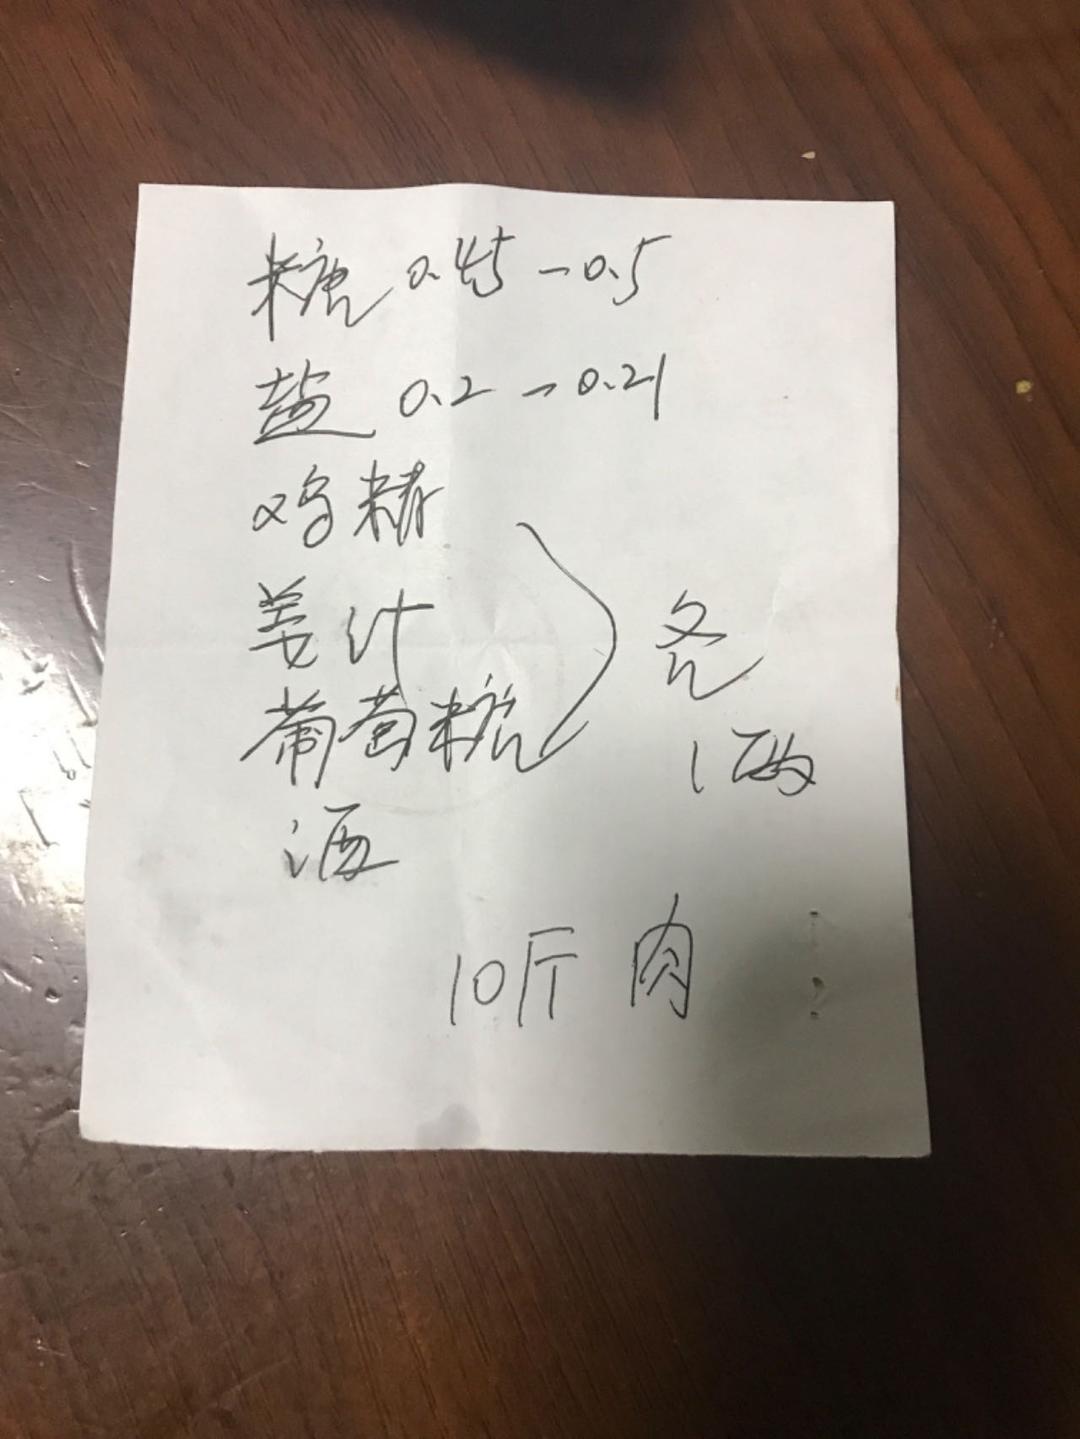 糖 0.45-0.5
盐 0.2-0.21
鸡精
姜汁
葡萄糖
各
1两
酒
10斤 肉